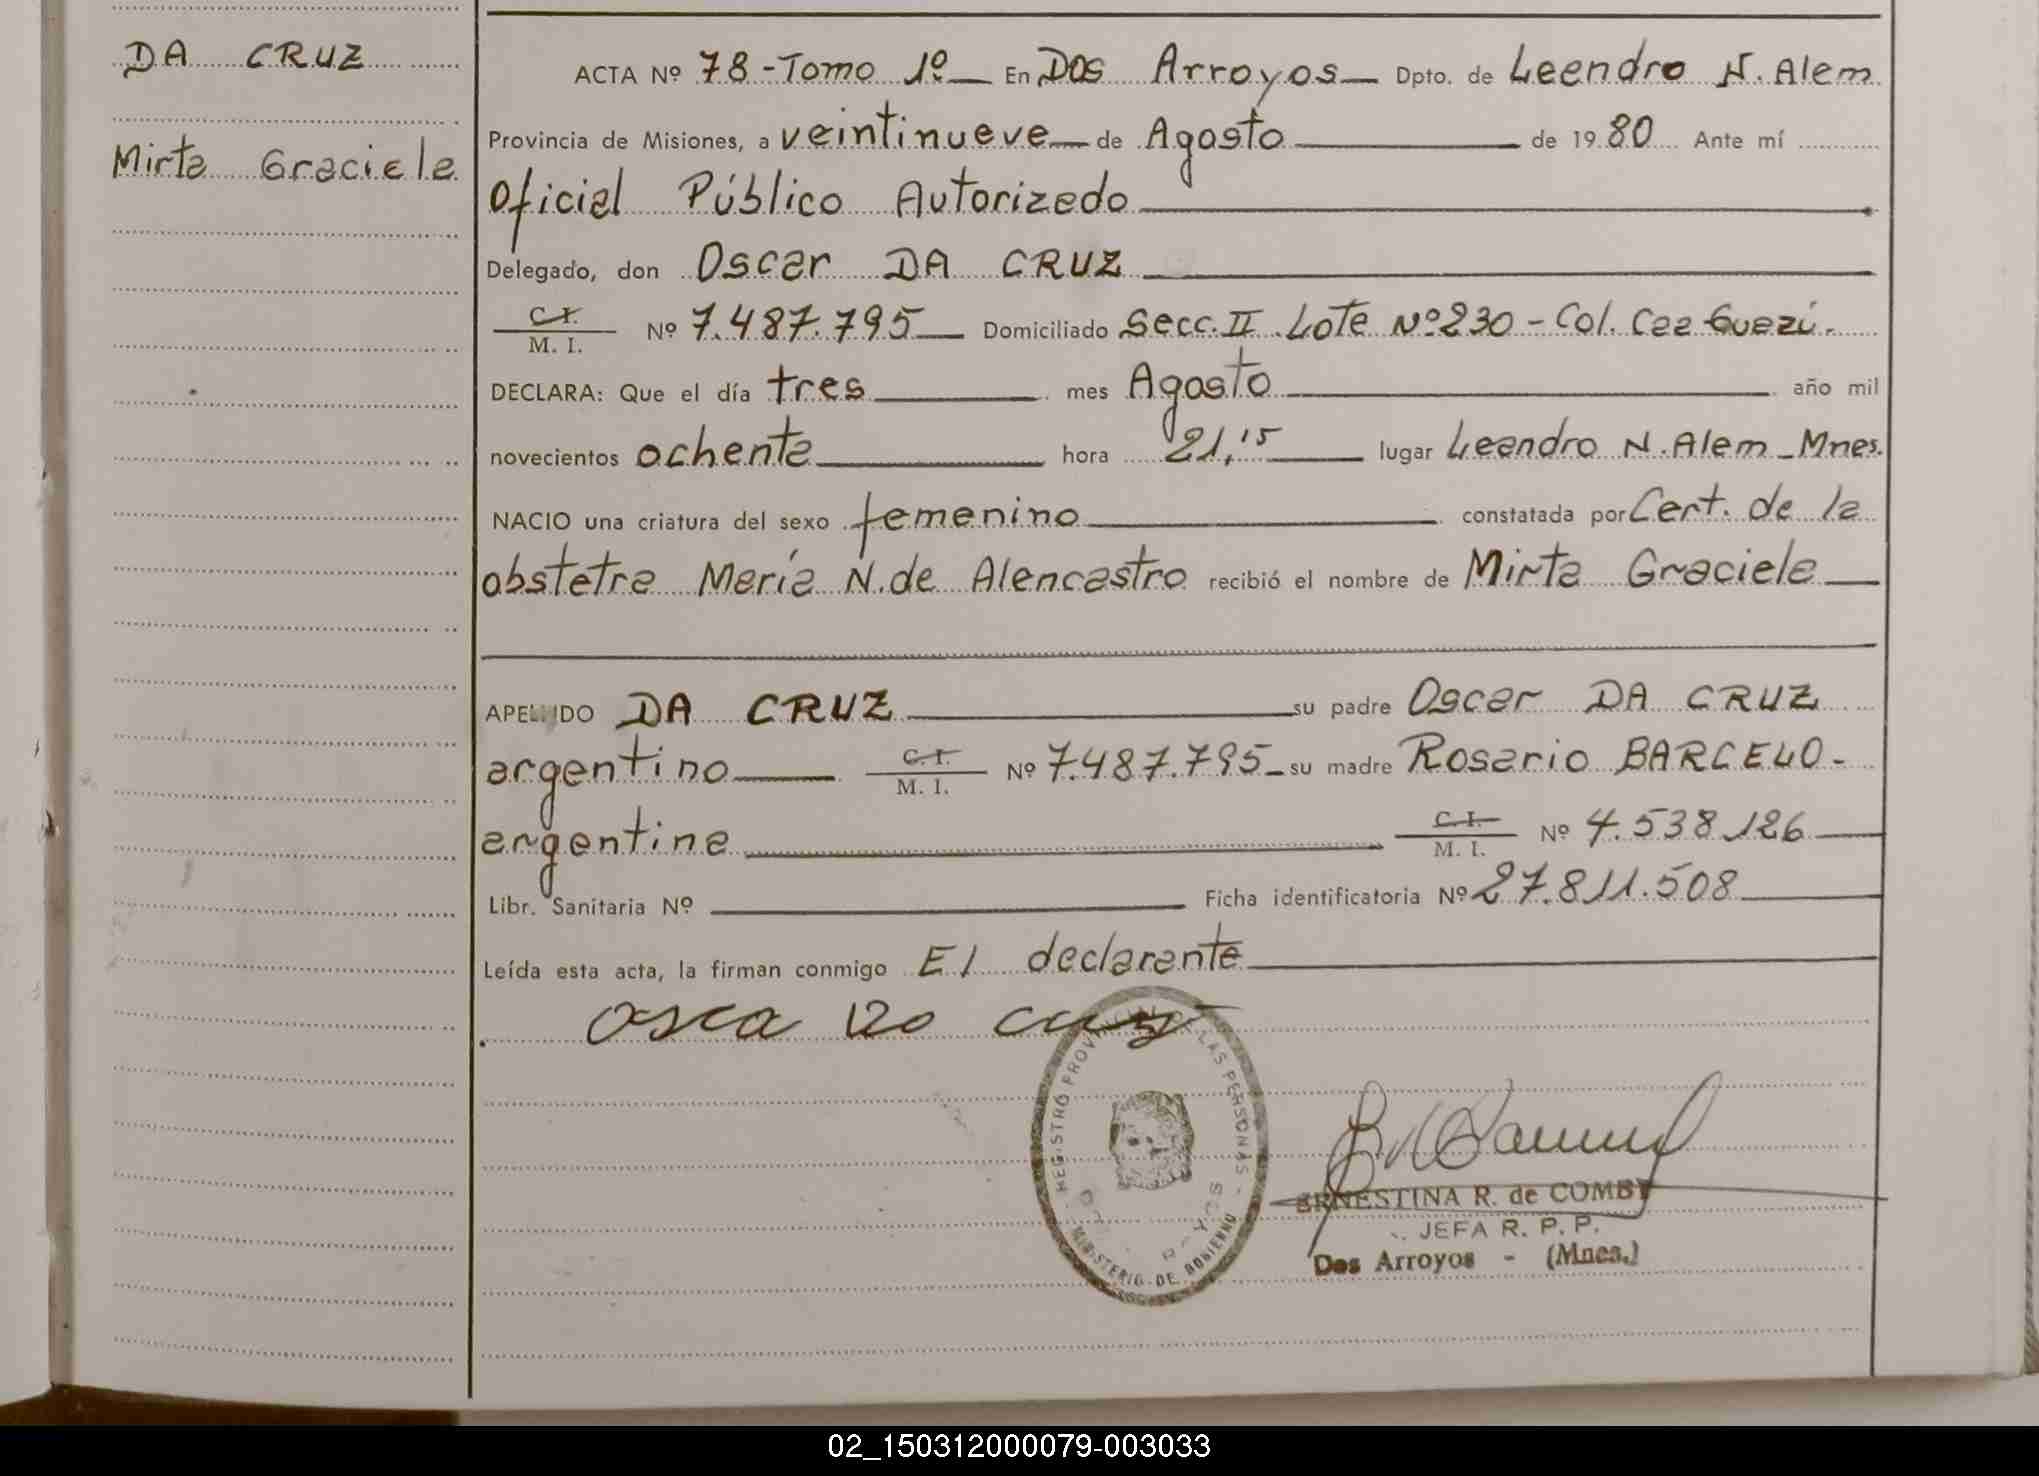 DA CRUZ
Mirta Graciela
ACTA Nº 78 - Tomo 1º En Dos Arroyos Dpto. de Leandro N. Alem
Provincia de Misiones, a veintinueve de Agosto de 1980 Ante mí
Oficial Público Autorizado
Delegado, don Oscar DA CRUZ
C.I.
M. I. Nº 7.487.795 Domiciliado Secc. II Lote Nº 230 - Col. Caa Guazú.
DECLARA: Que el día tres mes Agosto año mil
novecientos ochenta hora 21,15 lugar Leandro N. Alem - Mnes.
NACIO una criatura del sexo femenino constatada por Cert. de la
obstetra María N. de Alencastro recibió el nombre de Mirta Graciela
APELLIDO DA CRUZ su padre Oscar DA CRUZ
argentino C.I. M. I. Nº 7.487.795 - su madre Rosario BARCELO -
argentina C.I. M. I. Nº 4.538.126
Libr. Sanitaria Nº Ficha identificatoria Nº 27.811.508
Leída esta acta, la firman conmigo El declarante
REGISTRO PROVINCIAL DE LAS PERSONAS
MINISTERIO DE GOBIERNO
ERNESTINA R. de COMBY
JEFA R. P. P.
Dos Arroyos - (Mnes.)
02_150312000079-003033